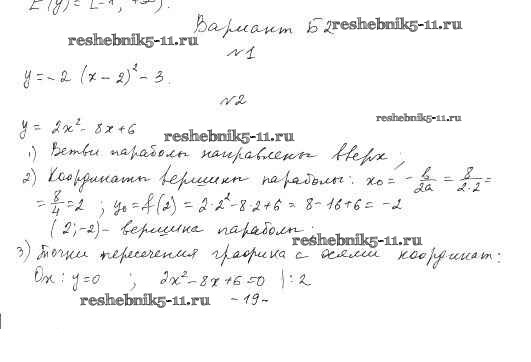 E(y) = [-1; +∞).
Вариант Б2
reshebnik5-11.ru
reshebnik5-11.ru
№1
y = -2 (x-2)² - 3.
№2
reshebnik5-11.ru
y = 2x² - 8x + 6
reshebnik5-11.ru
1) Ветви параболы направлены вверх;
2) Координаты вершины параболы: x₀ = -b/2a = 8/2·2 =
= 8/4 = 2 ; y₀ = f(2) = 2·2² - 8·2 + 6 = 8 - 16 + 6 = -2
(2; -2) - вершина параболы.
reshebnik5-11.ru
3) Точки пересечения графика с осями координат:
Ox: y = 0 ; 2x² - 8x + 6 = 0 |: 2
reshebnik5-11.ru
- 19 -
reshebnik5-11.ru